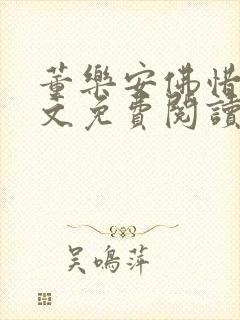 董樂安佛惜
文免費閱讀
吳鳴萍